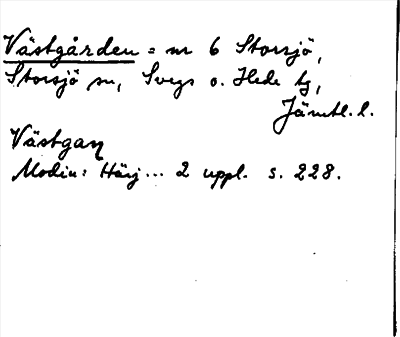 Västgården = nr 6 Storsjö,
Storsjö sn, Svegs o. Hede tg,
Jämtl. l.
Västgaɳ
Modin: Härj... 2 uppl. s. 228.